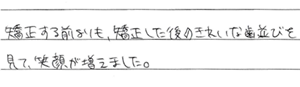 矯正する前よりも、矯正した後のきれいな歯並びを
見て、笑顔が増えました。